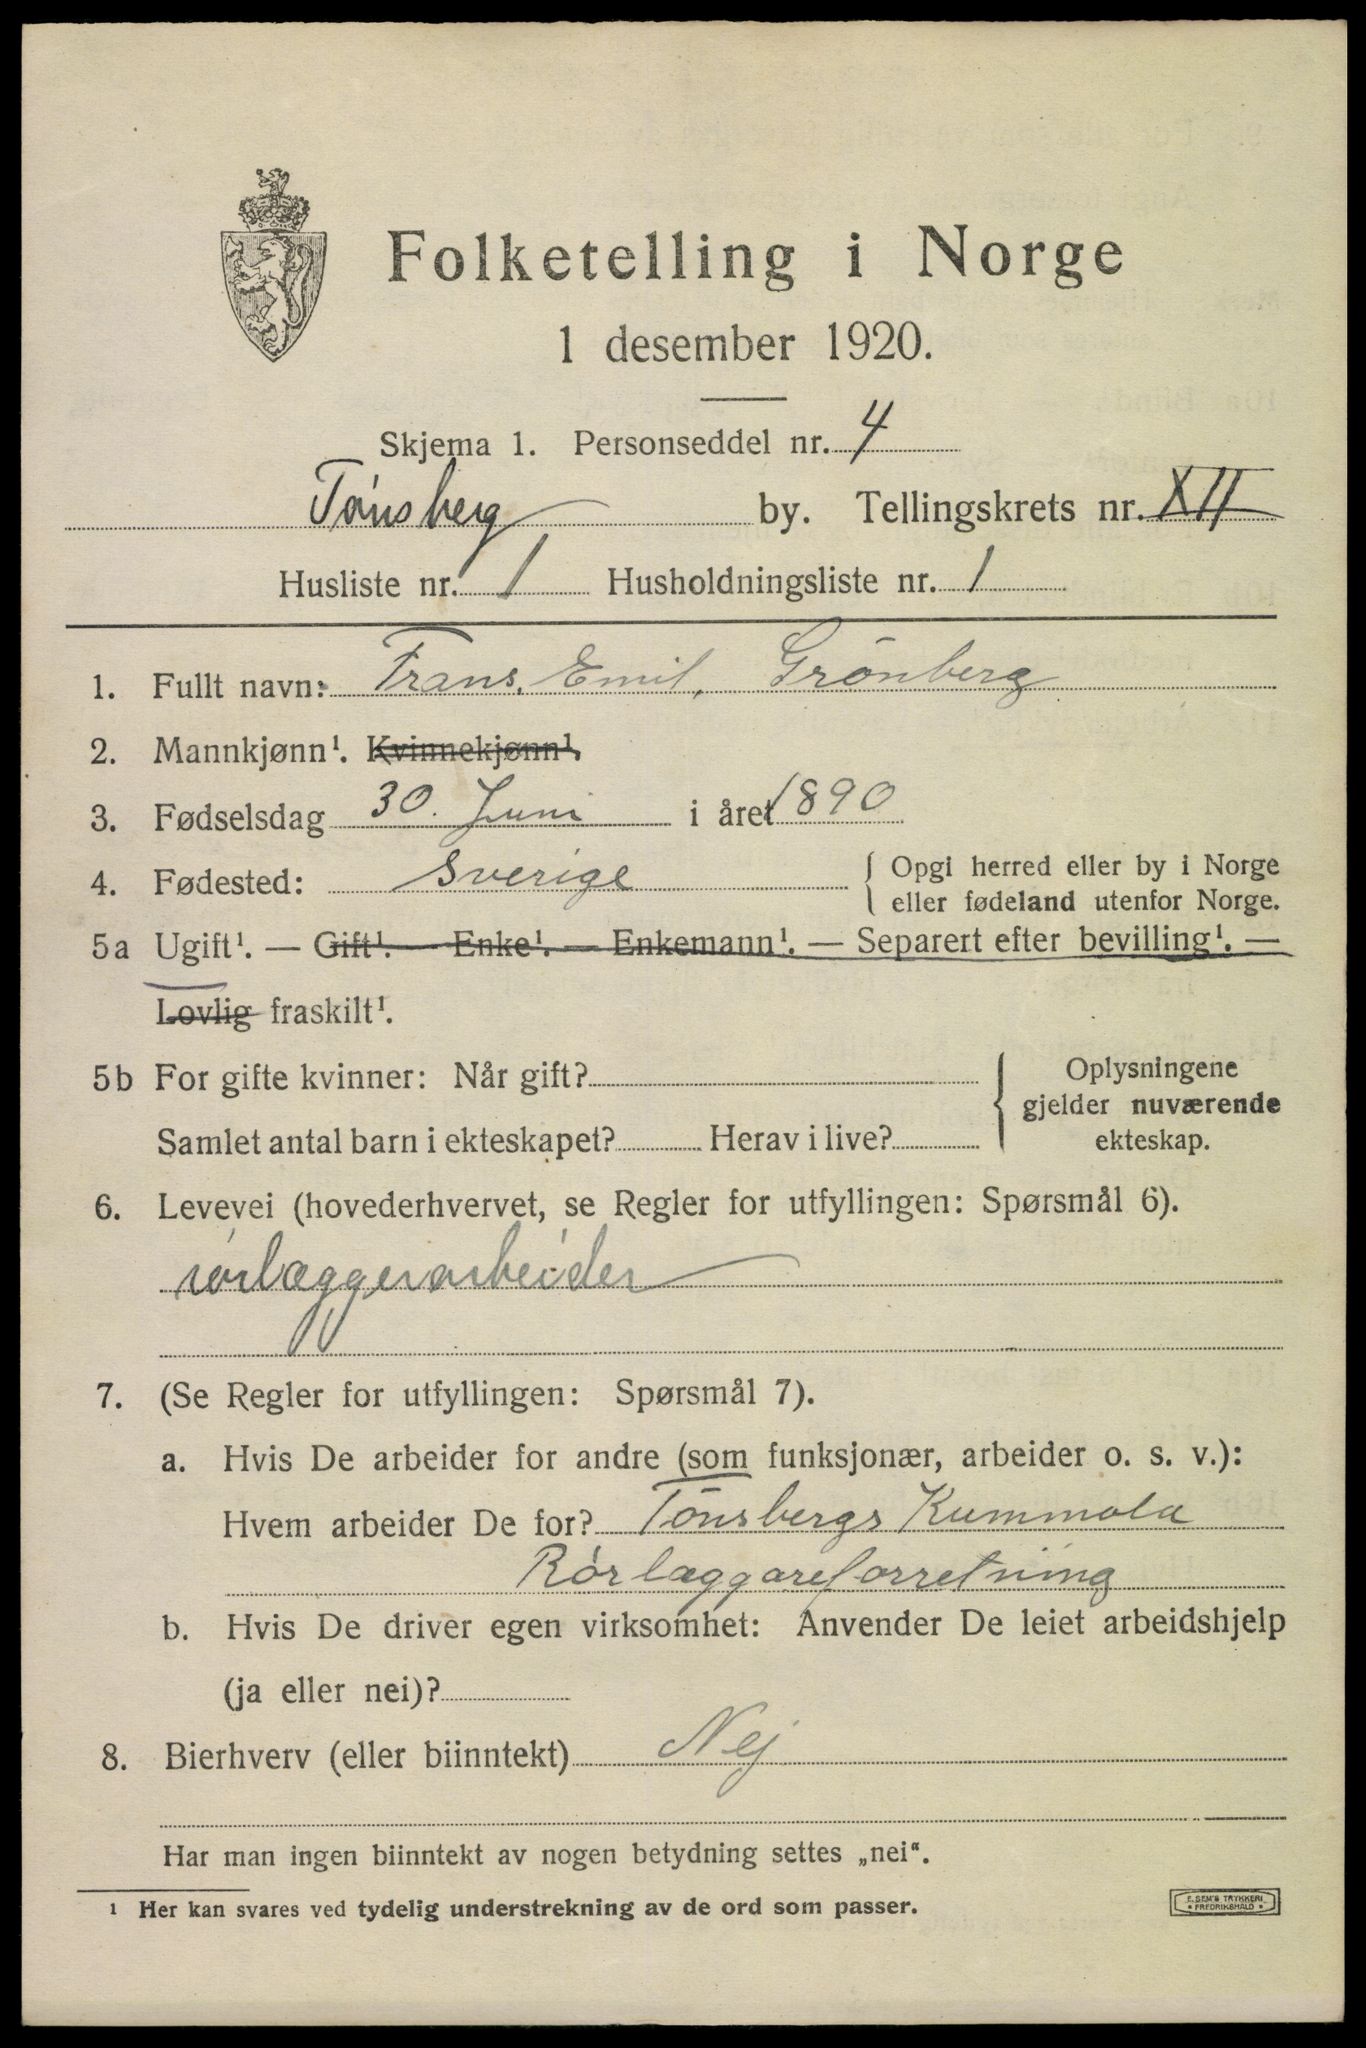 Folketelling i Norge
1 desember 1920.
Skjema 1. Personseddel nr. 4
Tønsberg by. Tellingskrets nr. XII
Husliste nr. 1 Husholdningsliste nr. 1
1. Fullt navn: Frans. Emil. Grönberg
2. Mannkjønn¹. Kvinnekjønn¹.
3. Fødselsdag 30. Juni i året 1890
4. Fødested: Sverige { Opgi herred eller by i Norge
eller fødeland utenfor Norge.
5a Ugift¹. — Gift¹. — Enke¹. — Enkemann¹. — Separert efter bevilling¹. —
Lovlig fraskilt¹.
5b For gifte kvinner: Når gift? { Oplysningene
gjelder nuværende
Samlet antal barn i ekteskapet? Herav i live? ekteskap.
6. Levevei (hovederhvervet, se Regler for utfyllingen: Spørsmål 6).
rørlæggerarbeider
7. (Se Regler for utfyllingen: Spørsmål 7).
a. Hvis De arbeider for andre (som funksjonær, arbeider o. s. v.):
Hvem arbeider De for? Tönsbergs Kummola
Rörlæggareforretning
b. Hvis De driver egen virksomhet: Anvender De leiet arbeidshjelp
(ja eller nei)?
8. Bierhverv (eller biinntekt) Nej
Har man ingen biinntekt av nogen betydning settes „nei".
¹ Her kan svares ved tydelig understrekning av de ord som passer.
E. SEM'S TRYKKERI
* FREDRIKSHALD *